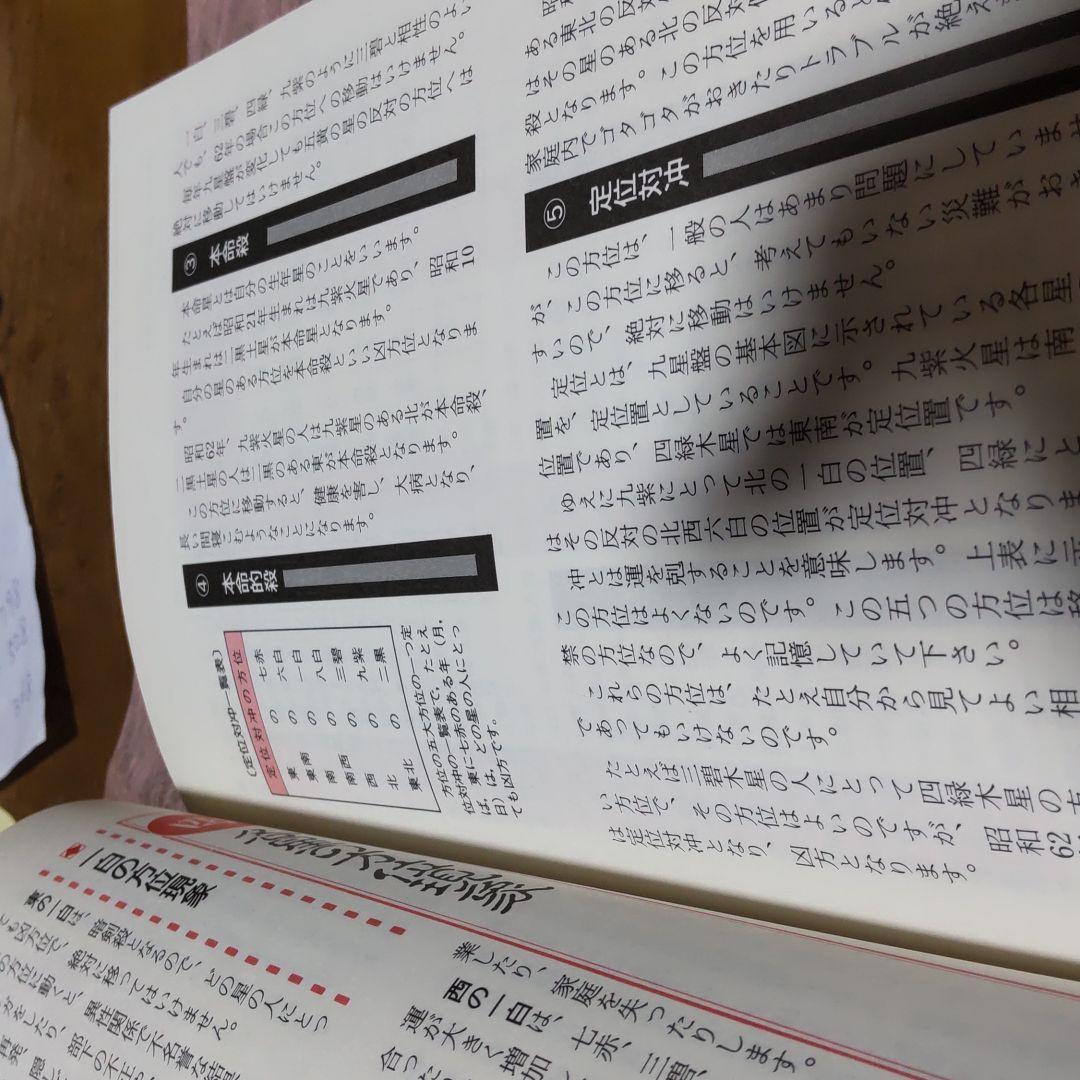 一白、三碧、四緑、九紫のように三碧と相性のよい
人でも、62年の場合この方位への移動はいけません。
毎年九星盤が変化しても五黄の星の反対の方位へは
絶対に移動してはいけません。
③ 本命殺
本命星とは自分の生年星のことをいいます。
たとえば昭和21年生まれは九紫火星であり、昭和10
年生まれは二黒土星が本命星となります。
自分の星のある方位を本命殺といい凶方位となりま
す。
昭和62年、九紫火星の人は九紫星のある北が本命殺、
二黒土星の人は二黒のある東が本命殺となります。
この方位に移動すると、健康を害し、大病となり、
長い間寝こむようなことになります。
④ 本命的殺
ある東北の反対
はその星のある北の反対
殺となります。この方位を用いると
家庭内でゴタゴタがおきたりトラブルが絶え
⑤ 定位対冲
この方位は、一般の人はあまり問題にしていませ
が、この方位に移ると、考えてもいない災難がおき
すいので、絶対に移動はいけません。
定位とは、九星盤の基本図に示されている各星
置を、定位置としていることです。九紫火星は南
位置であり、四緑木星では東南が定位置です。
ゆえに九紫にとって北の一白の位置、四緑にと
はその反対の北西六白の位置が定位対冲となりま
冲とは運を剋することを意味します。上表に示
この方位はよくないのです。この五つの方位は移
禁の方位なので、よく記憶していて下さい。
これらの方位は、たとえ自分から見てよい相
であってもいけないのです。
たとえば三碧木星の人にとって四緑木星の方
い方位で、その方位はよいのですが、昭和62
は定位対冲となり、凶方となります。
(定位対冲一覧表)
定位対冲の方位
東の七赤
東南の六白
南の一白
南西の八白
西の三碧
北の九紫
東北の二黒
方位の五大方位の一つ定
位対冲の一覧表で、たとえ
ば、東に七赤のある年(月、
日)は、どの星の人にとっ
ても凶方です。
一白の方位現象
東の一白は、暗剣殺となるので、どの星の人にとっ
ても凶方位で、絶対に移ってはいけません。
の方位に動くと、異性関係で不名誉な結果
がをしたり、部下の不正
業したり、家庭を失ったりします。
西の一白は、七赤、三碧、
運が大きく増加
合った